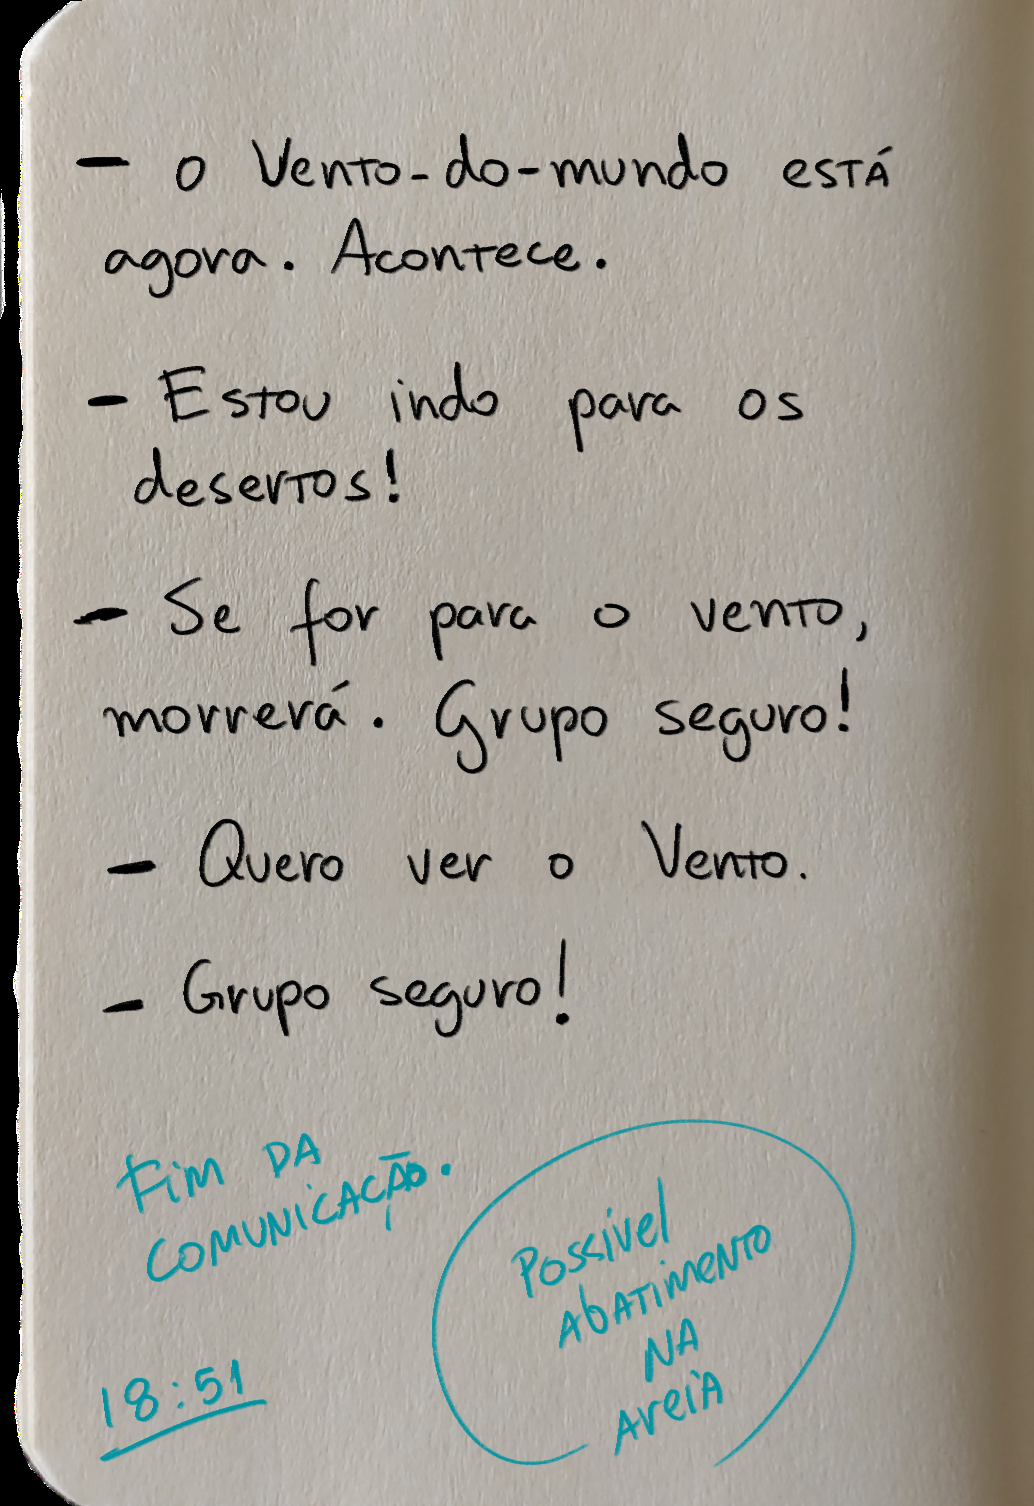 - O Vento-do-mundo está
agora. Acontece.
- Estou indo para os
desertos!
- Se for para o vento,
morrerá. Grupo seguro!
- Quero ver o Vento.
- Grupo seguro!
Fim da
comunicação.
Possível
abatimento
na
areia
18:51